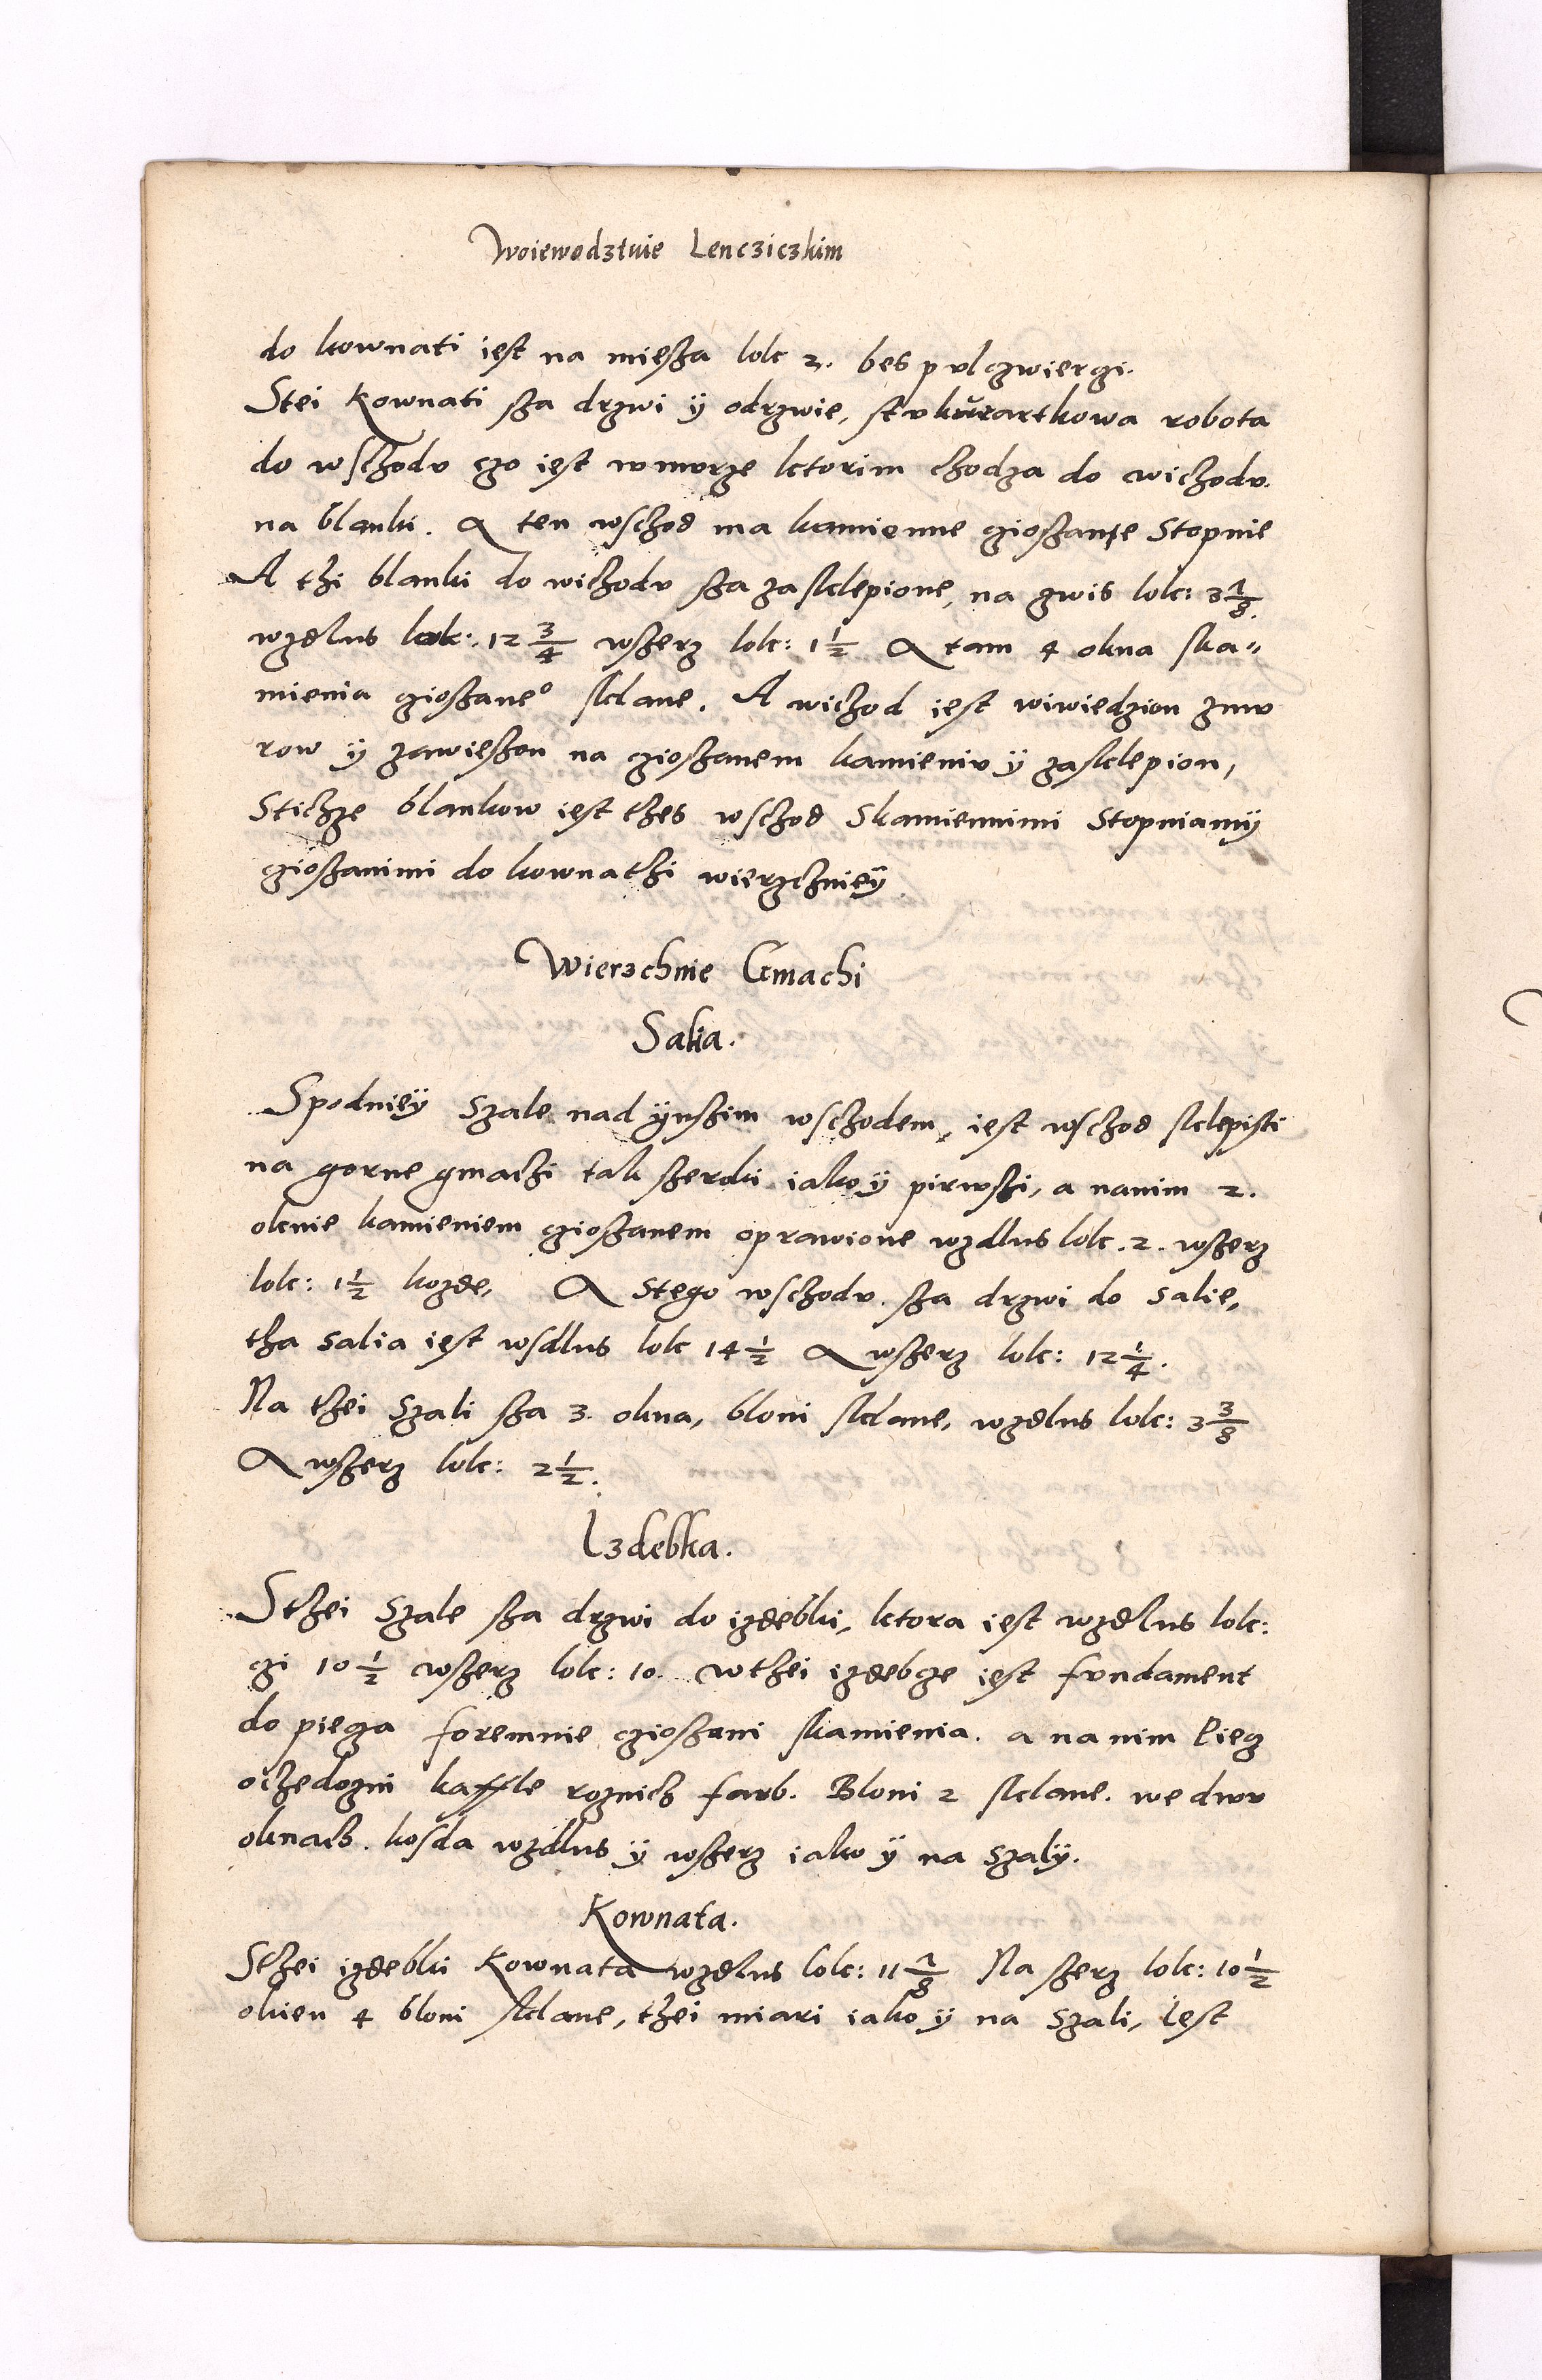 Woiewodztwie Lencziczkim
do kownati iest na miesza lokc 2. bes pulczwiergi.
Stei Kownati sza drzwi ÿ odrzwie, robota
do wschodu czo iest wmurze ktorim chodza do wichodu.
na blanki. A ten wschod ma kamienne cioszane Stopnie
A thi blanki do wichodu sza zasklepione, na zwis lokc: 3 7/8.
wzdlus lokc: 12 3/4 wszerz lokc: 1 1/2 A tam 4 okna ska"
mienia cioszane° sklane. A wichod iest wiwiedzion zmu
row ÿ zawieszon na czioszanem kamieniu ÿ zasklepion,
Stichze blankow iest thes wschod Skamiennimi Stopniamÿ
czioszanimi do kownathi wierzchnieÿ
Wierzchnie Gmachi
Salia.
Spodnieÿ Szale nad ÿnszim wschodem, iest wschod sklepisti
na gorne gmachi tak szeroki iako ÿ pirwszi, a nanim 2.
oknie kamieniem czioszanem oprawione wzdlus lokc. 2. wszerz
lokc: 1 1/2 kozde, A Stego wschodu. sza drzwi do Salie,
tha Salia iest wsdlus lokc 14 1/2 A wszerz lokc: 12 1/4.
Na thei Szali sza 3. okna, bloni sklane, wzdlus lokc: 3 3/8
A wszerz lokc: 2 1/2.
Izdebka.
Sthei Szale sza drzwi do izdebki, ktora iest wzdlus lokc:
czi 10 1/2 wszerz lokc: 10. wthei izdebcze iest fundament
do piecza foremnie czioszani skamienia. a na nim Piecz
ochedozni kaffle roznich farb. Bloni 2 sklane. we dwu
oknach. kosda wzdlus ÿ wszerz iako ÿ na Szalÿ.
Kownata.
Sthei izdebki Kownata wzdlus lokc: 11 7/8 Na szerz lokc: 10 1/2
okien 4 bloni sklane, thei miari iako ÿ na Szali, Iest